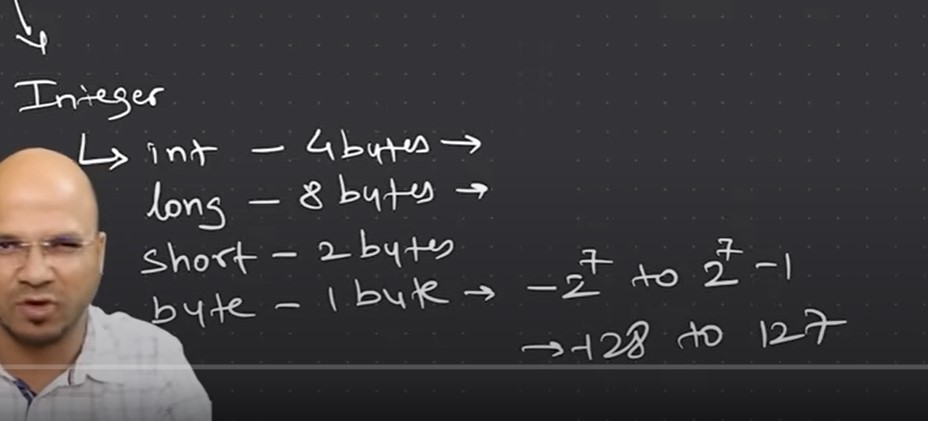 Integer
↳ int - 4 bytes →
long - 8 bytes →
short - 2 bytes
byte - 1 byte → -2⁷ to 2⁷ -1
→ -128 to 127